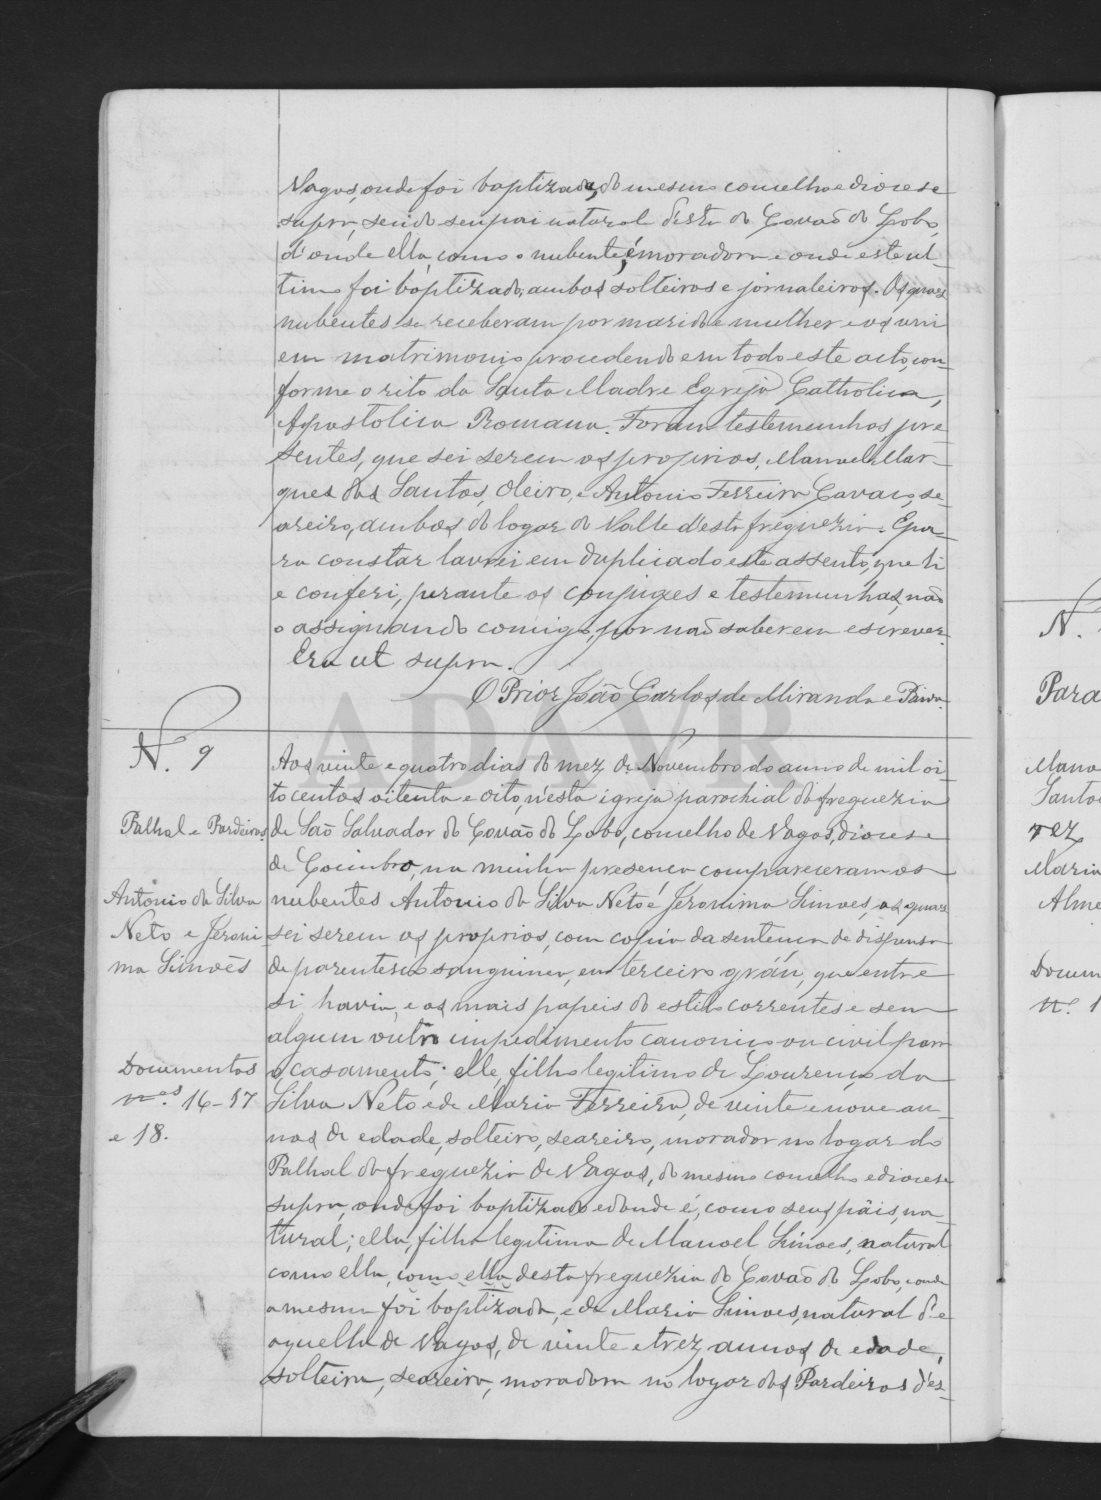 Vagos, onde foi baptizada, do mesmo concelho e diocese
supra, sendo seu pai natural d'esta do Covão do Lobo,
d'onde ella, como o nubente, é moradora e onde este ul-
timo foi baptizado, ambos solteiros e jornaleiros. Os quaes
nubentes se receberam por marido e mulher e os uni
em matrimonio procedendo em todo este acto, con-
forme o rito da Santa Madre Egreja Catholica,
Apostolica Romana. Foram testemunhas pre-
sentes, que sei serem os proprios, Manuel Mar-
ques dos Santos, oleiro, e Antonio Ferreira Cavaco, se-
areiro, ambos do logar do Valle d'esta freguezia. E pa-
ra constar lavrei em duplicado este assento, que li
e conferi, perante os conjuges e testemunhas, não
o assignando comigo, por não saberem escrever.
Era ut supra.
O Prior João Carlos de Miranda e Paiva.
N. 9
Palhal e Pardeiros
Antonio da Silva
Neto e Jeroni
ma Simoẽs
Documentos
n.os 16-17
e 18.
Aos vinte e quatro dias do mez de Novembro do anno de mil oi-
to centos oitenta e oito, n'esta igreja parochial da freguezia
de São Salvador do Covão do Lobo, concelho de Vagos, diocese
de Coimbra, na minha presença compareceram os
nubentes Antonio da Silva Neto e Jeronima Simoes, os quaes
sei serem os proprios, com copia da sentença de dispensa
de parentesco sanguineo, em terceiro gráu, que entre
si havia, e os mais papeis do estilo correntes e sem
algum outro impedimento canonico ou civil para
o casamento; elle, filho legitimo de Lourenço da
Silva Neto e de Maria Ferreira, de vinte e nove an-
nos de edade, solteiro, seareiro, morador no logar do
Palhal da freguezia de Vagos, do mesmo concelho e diocese
supra, onde foi baptizado e donde é, como seus páis, na-
tural; ella, filha legitima de Manoel Simoes, natural
como ella, como ella desta freguezia do Covão do Lobo, onde
a mesma foi baptizada, e de Maria Simoes, natural d'e
aquella de Vagos, de vinte e trez annos de edade,
solteira, seareira, moradora no logar dos Pardeiros d'es-
N.
Para
Mano
Santo
rez
Maria
Alme
Docum
n.º 1
ADAVR